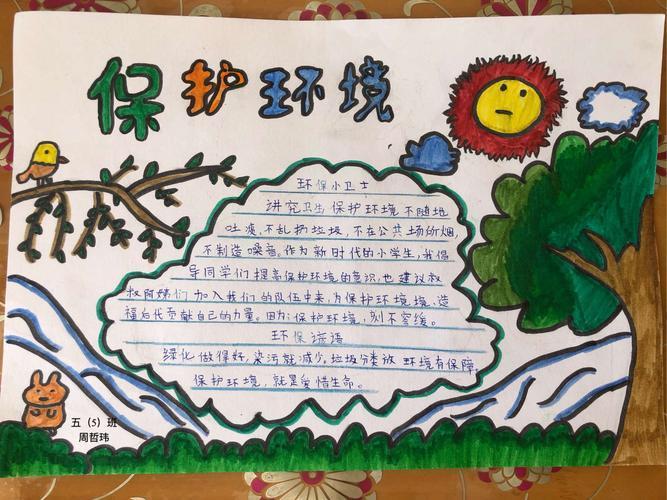 保护环境
环保小卫士
讲究卫生保护环境不随地
吐痰,不乱扔垃圾,不在公共场所烟
不制造噪音。作为新时代的小学生,我倡
导同学们提高保护环境的意识,也建议叔
叔阿姨们加入我们的队伍中来,为保护环境境,造
福后代贡献自己的力量。因为:保护环境,刻不容缓。
环保谚语
绿化做得好,染污就减少。垃圾分类放 环境有保障。
保护环境,就是爱惜生命。
五(5)班
周哲玮